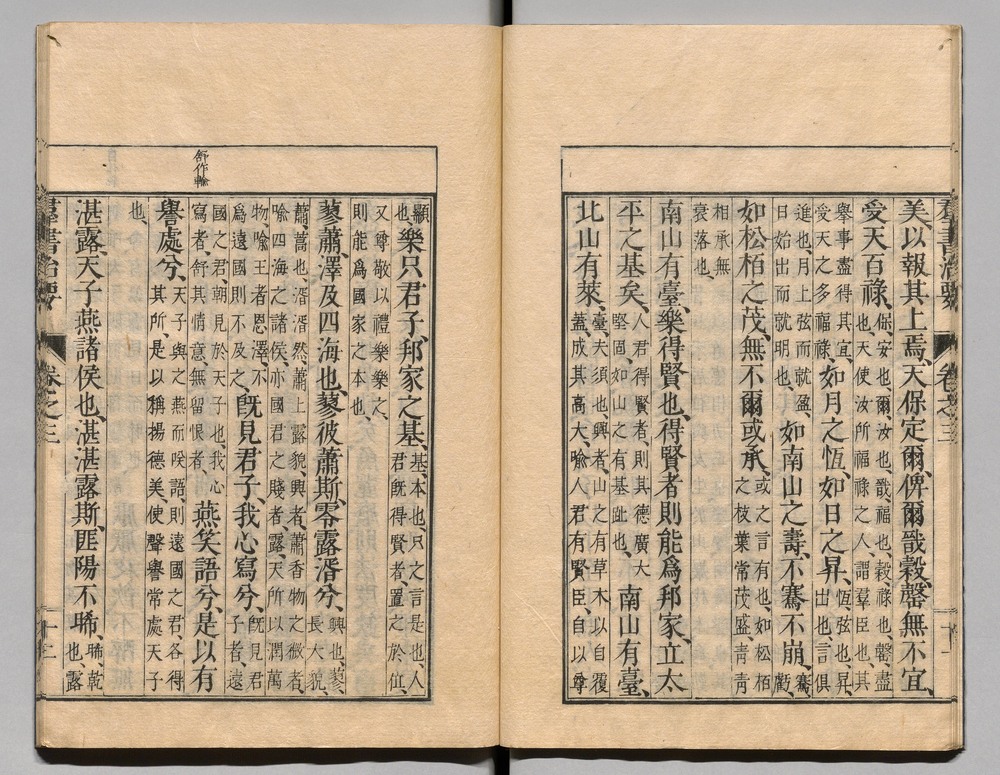 羣書治要 卷之三 十二
美以報其上焉、天保定爾、俾爾戩穀、罄無不宜、
受天百祿、保、安也、爾、汝也、戩、福也、穀、祿也、罄、盡也、天使汝所福祿之人、謂羣臣也、其
舉事盡得其宜、受天之多福祿、如月之恆、如日之昇、恆、弦也、昇、出也、言俱
進也、月上弦而就盈、日始出而就明也、如南山之壽、不騫不崩、騫、虧、
如松栢之茂、無不爾或承、或之言有也、如松栢之枝葉常茂盛、青青
相承無衰落也、
南山有臺、樂得賢也、得賢者則能爲邦家、立太
平之基矣、人君得賢者、則其德廣大堅固、如山之有基趾也、南山有臺、
北山有萊、臺、夫須也、興者、山之有草木以自覆蓋、成其高大、喩人君有賢臣、自以尊
顯也、樂只君子、邦家之基、基、本也、只之言是也、人君旣得賢者、置之於位、
又尊敬以禮樂樂之、則能爲國家之本也、
蓼蕭、澤及四海也、蓼彼蕭斯、零露湑兮、興也、蓼、長大貌、
蕭、蒿也、湑湑然、蕭上露貌、興者、蕭香物之微者、喩四海之諸侯、亦國君之賤者、露、天所以潤萬
物、喩王者恩澤、不爲遠國則不及之、旣見君子、我心寫兮、旣見君子者、遠
國之君、朝見於天子也、我心寫者、舒其情意、無留恨者、燕笑語兮、是以有
譽處兮、天子與之燕而咲語、則遠國之君、各得其所、是以稱揚德美、使聲譽常處天子
也、
湛露、天子燕諸侯也、湛湛露斯、匪陽不晞、晞、乾也、露
舒作輸
羣書治要 卷之三 十二